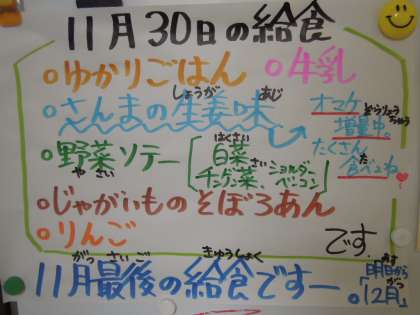 11月30日の給食
ゆかりごはん
牛乳
さんまの生姜味
しょうが あじ
オマケ
増量中。
ぞうりょうちゅう
たくさん
食べてね
た
野菜ソテー
やさい
白菜
はくさい
チンゲン菜、ショルダーベーコン
さい
じゃがいものそぼろあん
りんご
です
11月最後の給食ですー
がつ さいご きゅうしょく
明日から
あす
「12月」
がつ